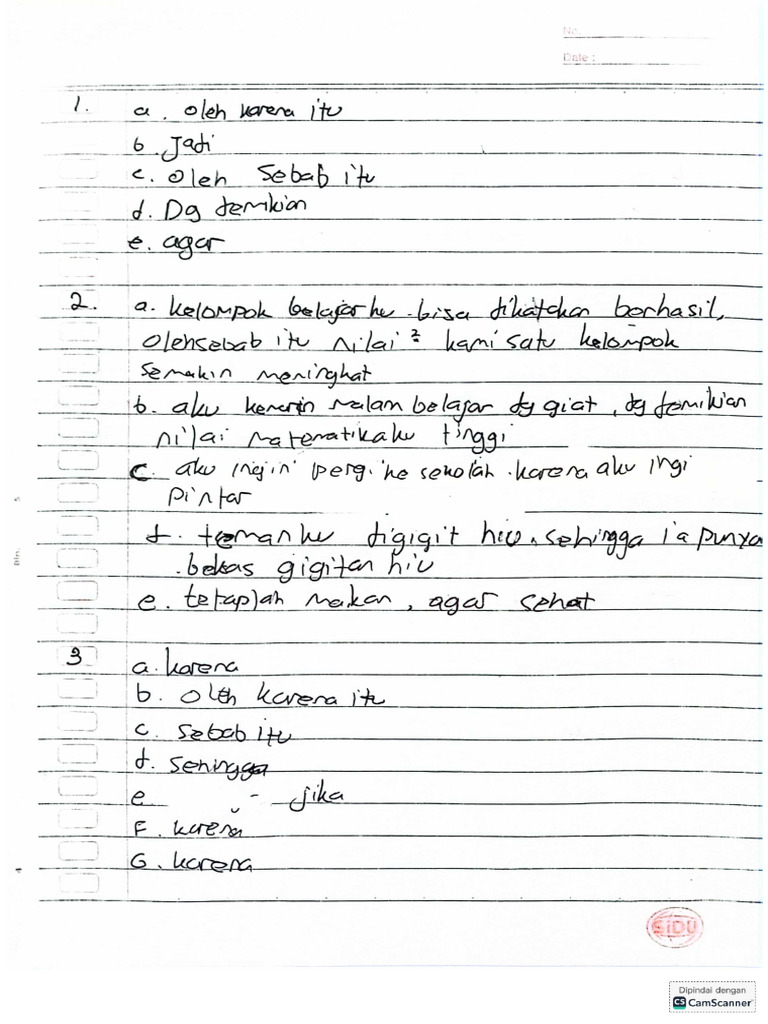 No.
Date :
1. a. oleh karena itu
b. Jadi
c. oleh sebab itu
d. Dg demikian
e. agar
2. a. kelompok belajarku bisa dikatakan berhasil,
olehsebab itu nilai² kami satu kelompok
semakin meningkat
b. aku kemarin malam belajar dg giat, dg demikian
nilai matematikaku tinggi
c. aku ingin pergi ke sekolah karena aku ingi
pintar
d. temanku digigit hiu, sehingga ia punya
bekas gigitan hiu
e. tetaplah makan, agar sehat
3 a. karena
b. oleh karena itu
c. sebab itu
d. sehingga
e - jika
F. karena
G. karena
SIDU
Dipindai dengan
CS CamScanner